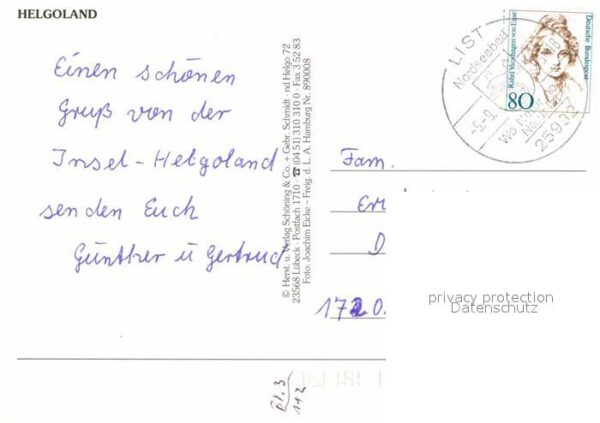 HELGOLAND
Einen schönen
Gruß von der
Insel-Helgoland
senden Euch
Günther u Gertrud
© Herst. u. Verlag Schöning & Co. + Gebr. Schmidt · nd Helgo 72
23568 Lübeck · Postfach 1710 · ☎ (04 51) 310 310 0 · Fax 3 52 83
Foto: Joachim Eicke – Freig. d. L. A. Hamburg Nr. 890008
LIST
Nordseebad
-5.-9.
25992
Deutsche Bundespost
Rahel Varnhagen von Ense
80
Fam.
Er
D
1720.
privacy protection
Datenschutz